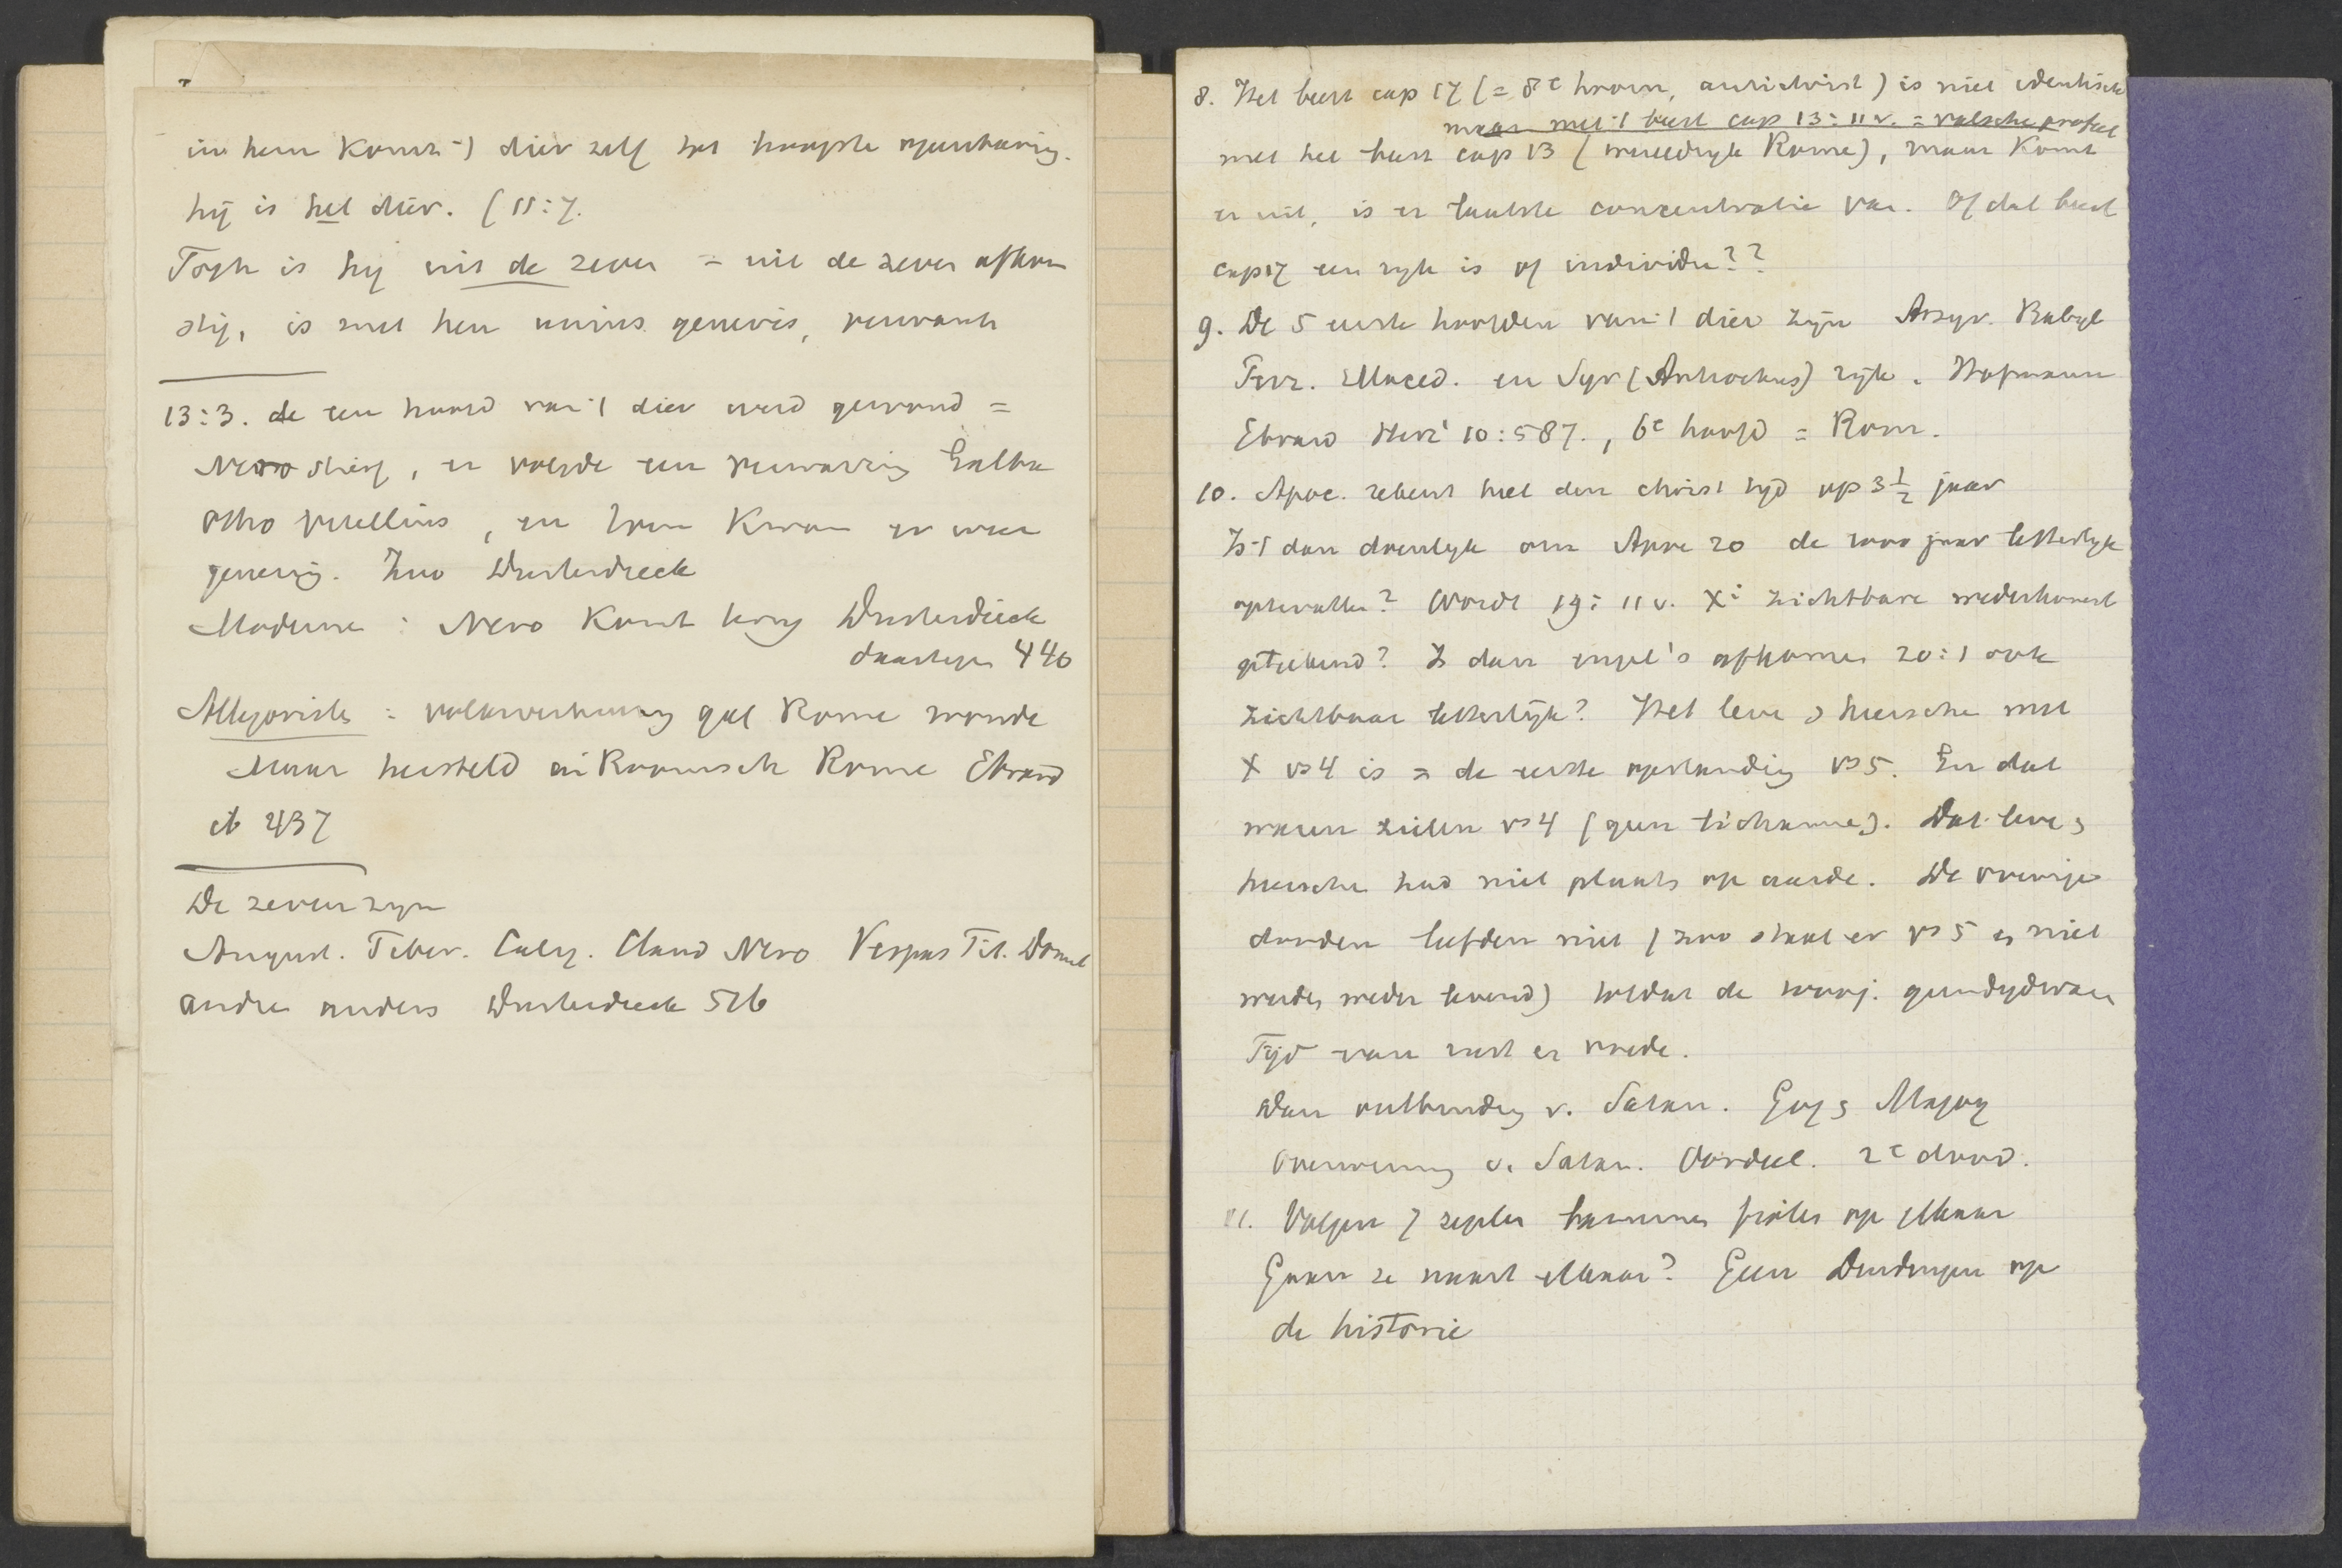 in hem komt 't dier zelf tot hoogste openbaring.
hij is het dier. (11:7.
Toch is hij uit de zeven = uit de zeven afkom
stig, is met hen unius generis, verwant
13:3. de een hoofd van 't dier werd gewond =
Nero stierf, er volgde een verwarring Galba
Otho Vitellius, en toen kwam er weer
genezing. Zoo Dusterdieck
Moderne : Nero komt terug Dusterdieck
daartegen 446
Allegorisch = volksverhuizing gaf Rome wonde
maar hersteld in Roomsch Rome Ebrard
ib 437
De zeven zijn
August. Tiber. Calig. Claud Nero Vespas Tit. Domit
andre anders Dusterdieck 516
8. Het beest cap 17 (= 8e hoorn, antichrist) is niet identisch
maar met 't beest cap 13:11 v. = valsche profeet
met het beest cap 13 (wereldrijk Rome), maar komt
er uit, is er laatste concentratie van. Of dat beest
cap 17 een rijk is of individu??
9. De 5 eerste hoofden van 't dier zijn Assyr. Babyl
Perz. Maced. en Syr (Antiochus) rijk. Hofmann
Ebrard Herz² 10:587., 6e hoofd = Rome.
10. Apoc. rekent heel den christ tijd op 3 1/2 jaar
Is 't dan doenlijk om Apoc 20 de 1000 jaar letterlijk
optevatten? Wordt 19:11 v. X' zichtbare wederkomst
geteekend? Is dan engel's afkomen 20:1 ook
zichtbaar letterlijk? Het leven en heerschen met
X vs 4 is = de eerste opstanding vs 5. En dat
waren zielen vs 4 (geen lichamen). Dat leven en
heerschen had niet plaats op aarde. De overige
dooden leefden niet (zoo staat er vs 5 en niet
werden weder levend) totdat de 1000 j. geeindigd waren
Tijd van rust en vrede.
Dan ontbinding v. Satan. Gog en Magog
Overwinning v. Satan. Oordeel. 2e dood.
11. Volgen 7 zegelen bazuinen fiolen op elkaar
Gaan ze naast elkaar? Geen Duidingen op
de historie